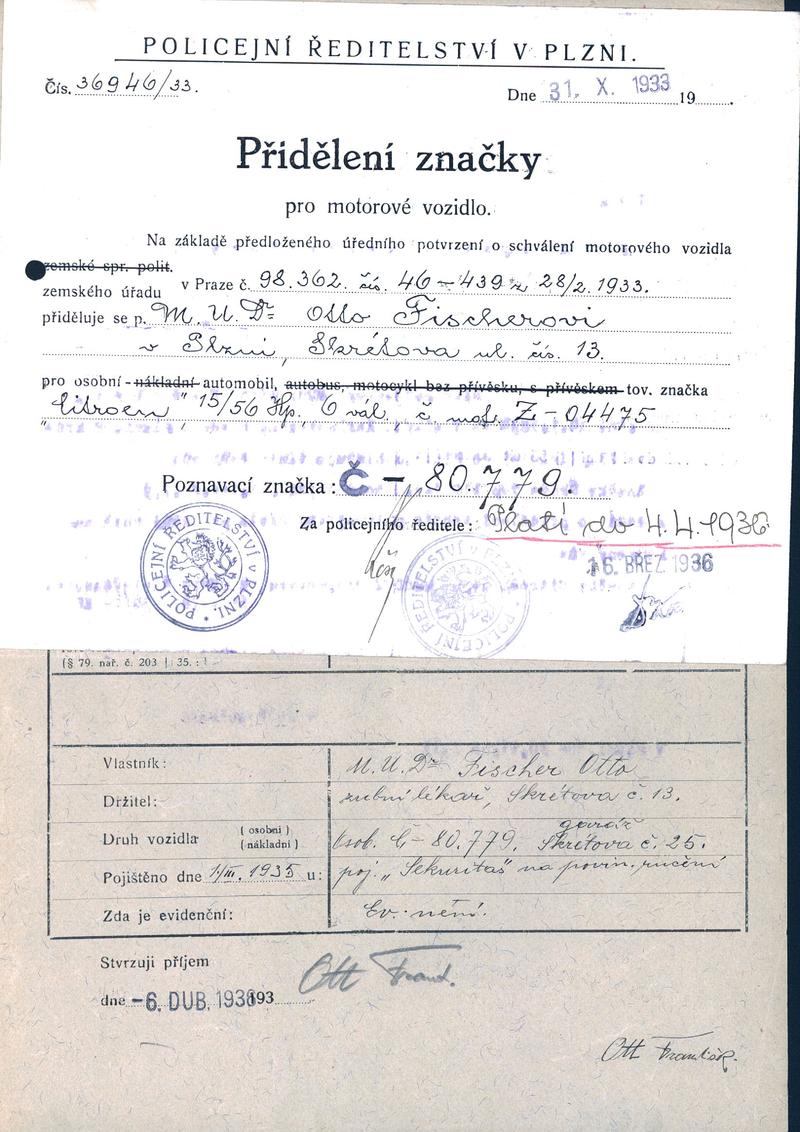 POLICEJNÍ ŘEDITELSTVÍ V PLZNI.
Čís. 36946/33.
Dne 31. X. 1933 19
Přidělení značky
pro motorové vozidlo.
Na základě předloženého úředního potvrzení o schválení motorového vozidla
zemské spr. polit.
zemského úřadu v Praze č. 98.362. čís. 46-439 z 28/2. 1933.
přiděluje se p. M. U. Dr. Otto Fischerovi
v Plzni, Skrétova ul. čís. 13.
pro osobní - nákladní - automobil, autobus, motocykl bez přívěsku, s přívěskem - tov. značka
"Citroen", 15/56 Hp, 6 vál, č. mot. Z-04475
Poznavací značka: Č - 80.779.
Za policejního ředitele: Platí do 4.4.1936
POLICEJNÍ ŘEDITELSTVÍ V PLZNI.
POLICEJNÍ ŘEDITELSTVÍ V PLZNI
16. BŘEZ. 1936
(§ 79. nař. č. 203 | 35.:
Vlastník: M. U. Dr. Fischer Otto
Držitel: zubní lékař, Skrétova č. 13.
garáž
Druh vozidla (osobní) (nákladní) osob. Č-80.779. Skrétova č. 25.
Pojištěno dne 1/III. 1935 u: poj. „Sekuritas" na povin. ručení
Zda je evidenční: Ev. není.
Stvrzuji příjem
Ott Frant.
dne -6. DUB. 1936 193
Ott František.